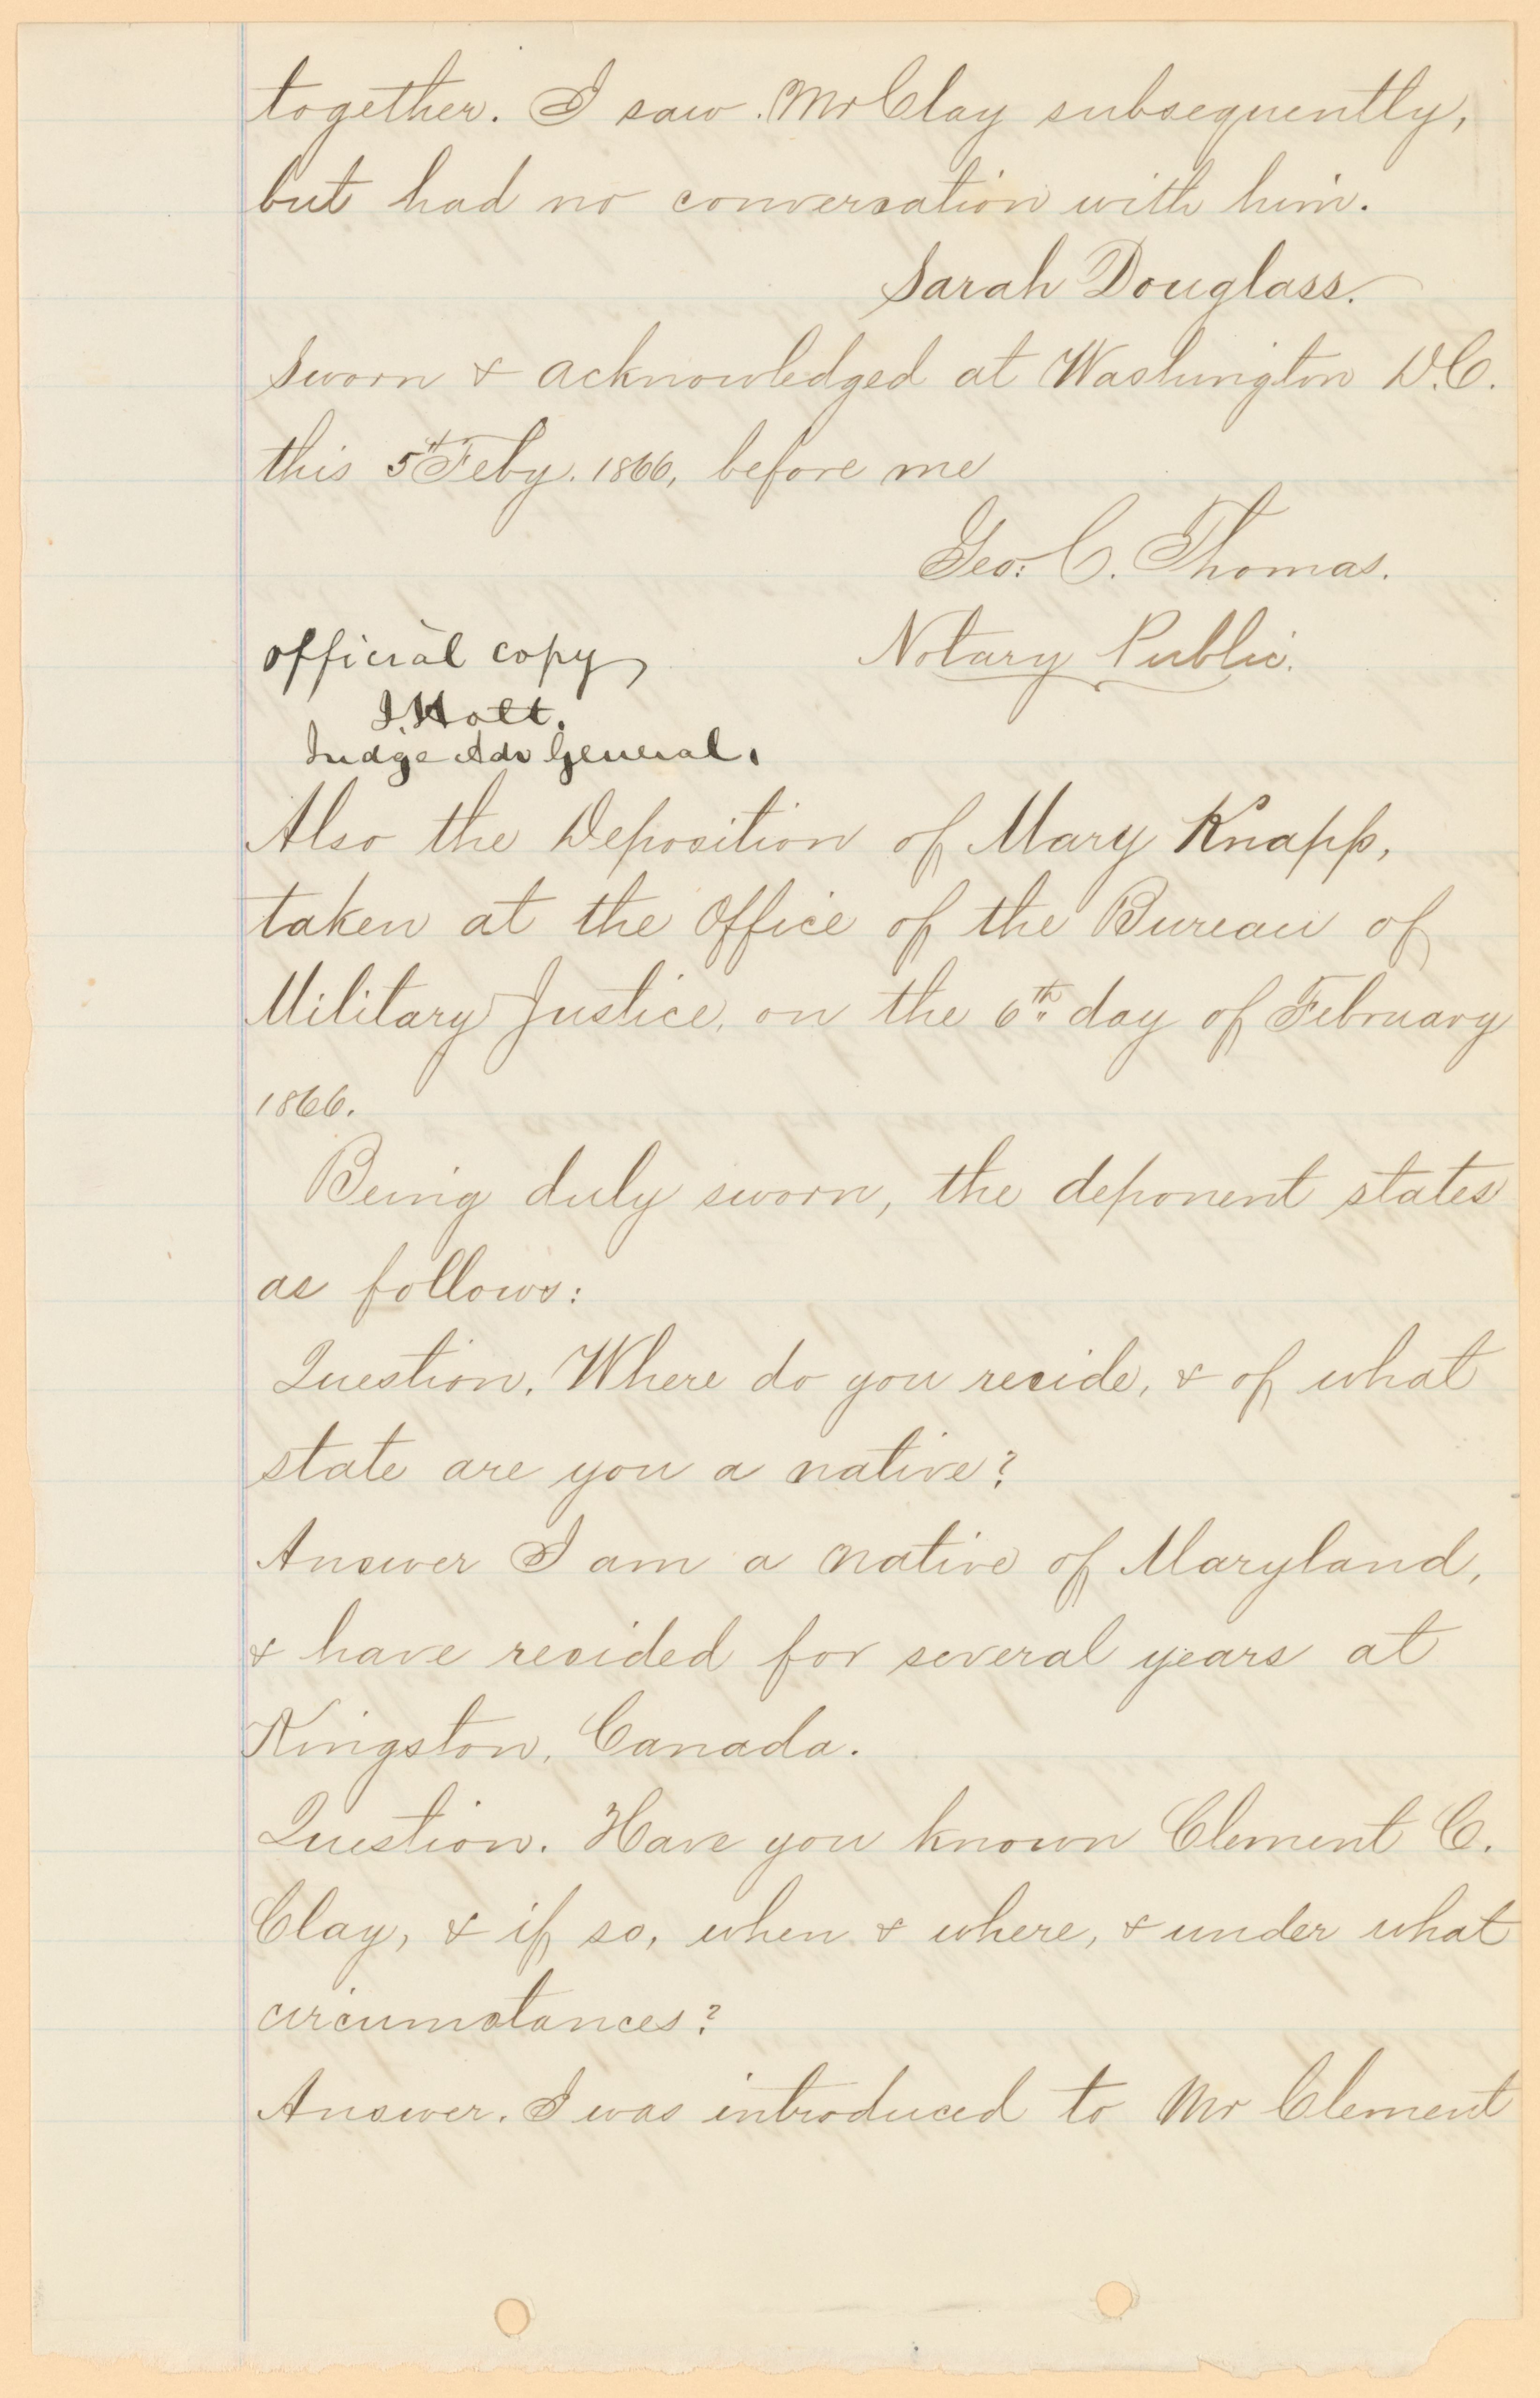 together. I saw Mr Clay subsequently,
but had no conversation with him.
Sarah Douglass.
Sworn & acknowledged at Washington D.C.
this 5th Feby. 1866, before me
Geo: C. Thomas.
Notary Public.
official copy
J. Holt.
Judge Adv General.
Also the Deposition of Mary Knapp,
taken at the Office of the Bureau of
Military Justice, on the 6th day of February
1866.
Being duly sworn, the deponent states
as follows:
Question. Where do you reside, & of what
state are you a native?
Answer I am a native of Maryland,
& have resided for several years at
Kingston, Canada.
Question. Have you known Clement C.
Clay, & if so, when & where, & under what
circumstances?
Answer. I was introduced to Mr Clement